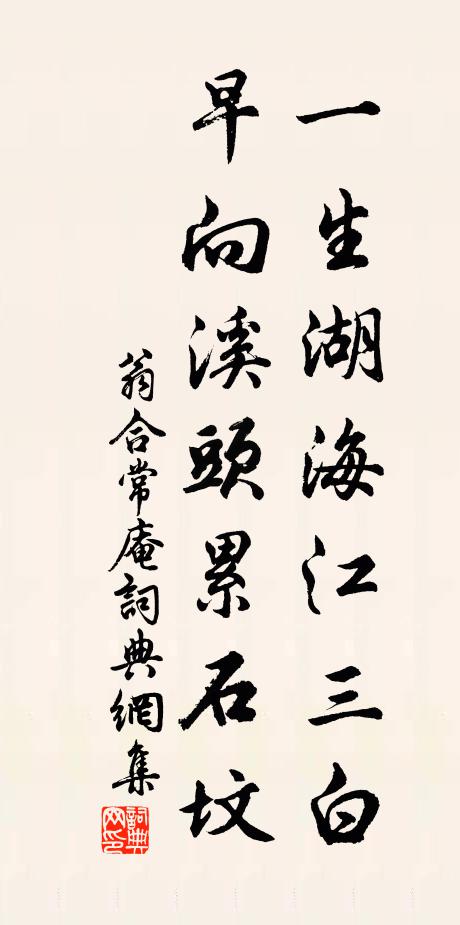 一生湖海江三白
早向溪頭累石墳
翁合常庵詞典網集
詞典网印